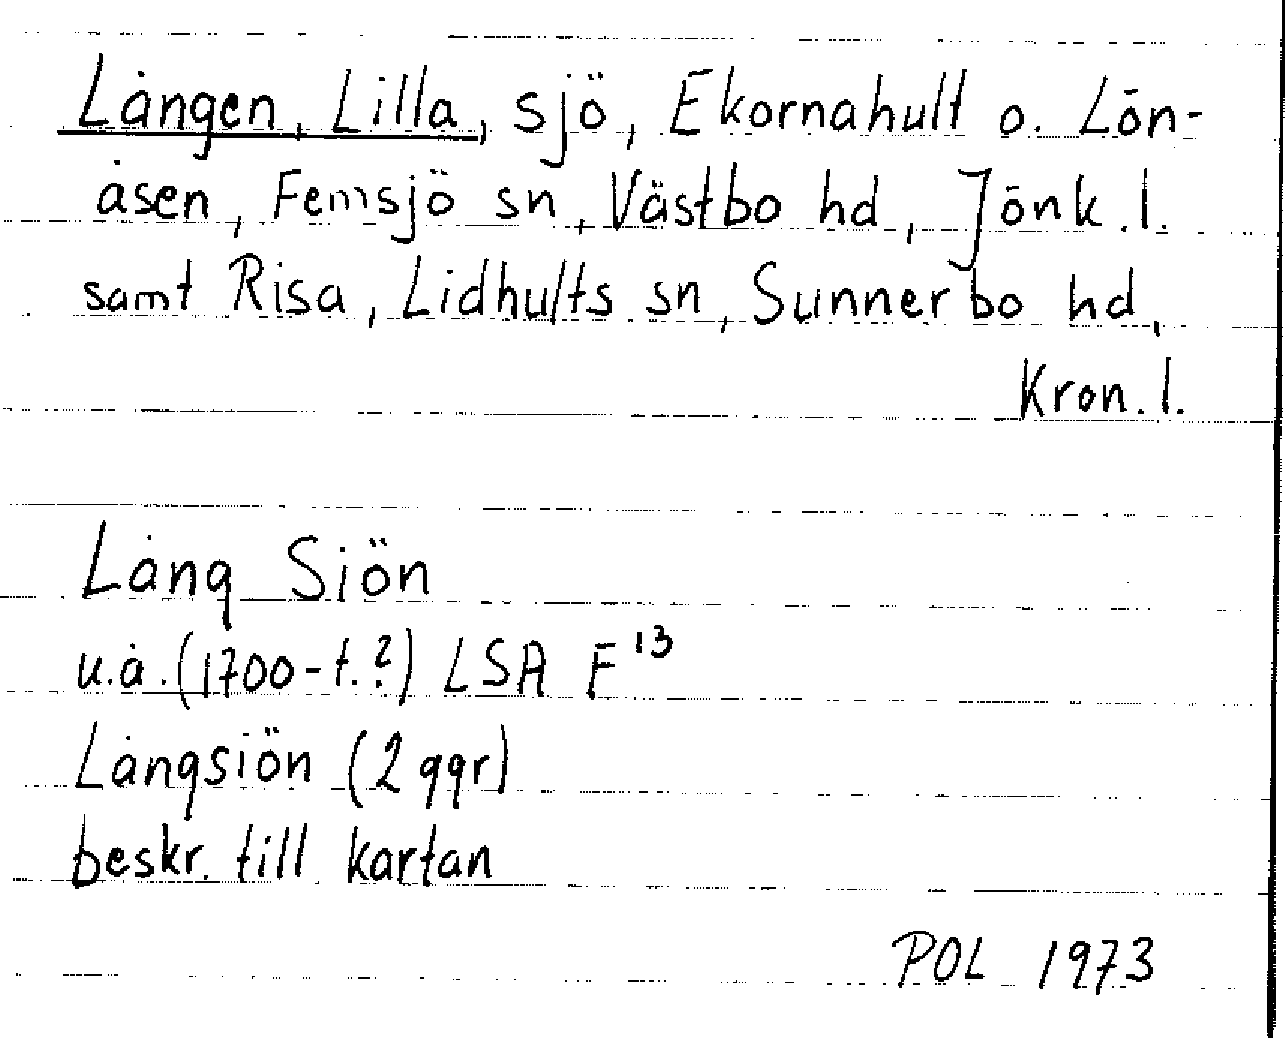 Lången, Lilla, sjö, Ekornahult o. Lön-
åsen, Femsjö sn, Västbo hd, Jönk.l.
samt Risa, Lidhults sn, Sunnerbo hd,
Kron.l.
Lång Siön
u.å.(1700-t.?) LSA F13
Långsiön (2 ggr)
beskr. till kartan
POL 1973